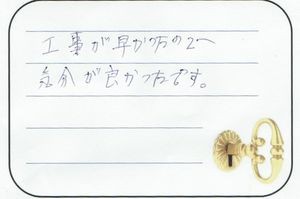 工事が早かったので
気分が良かったです。